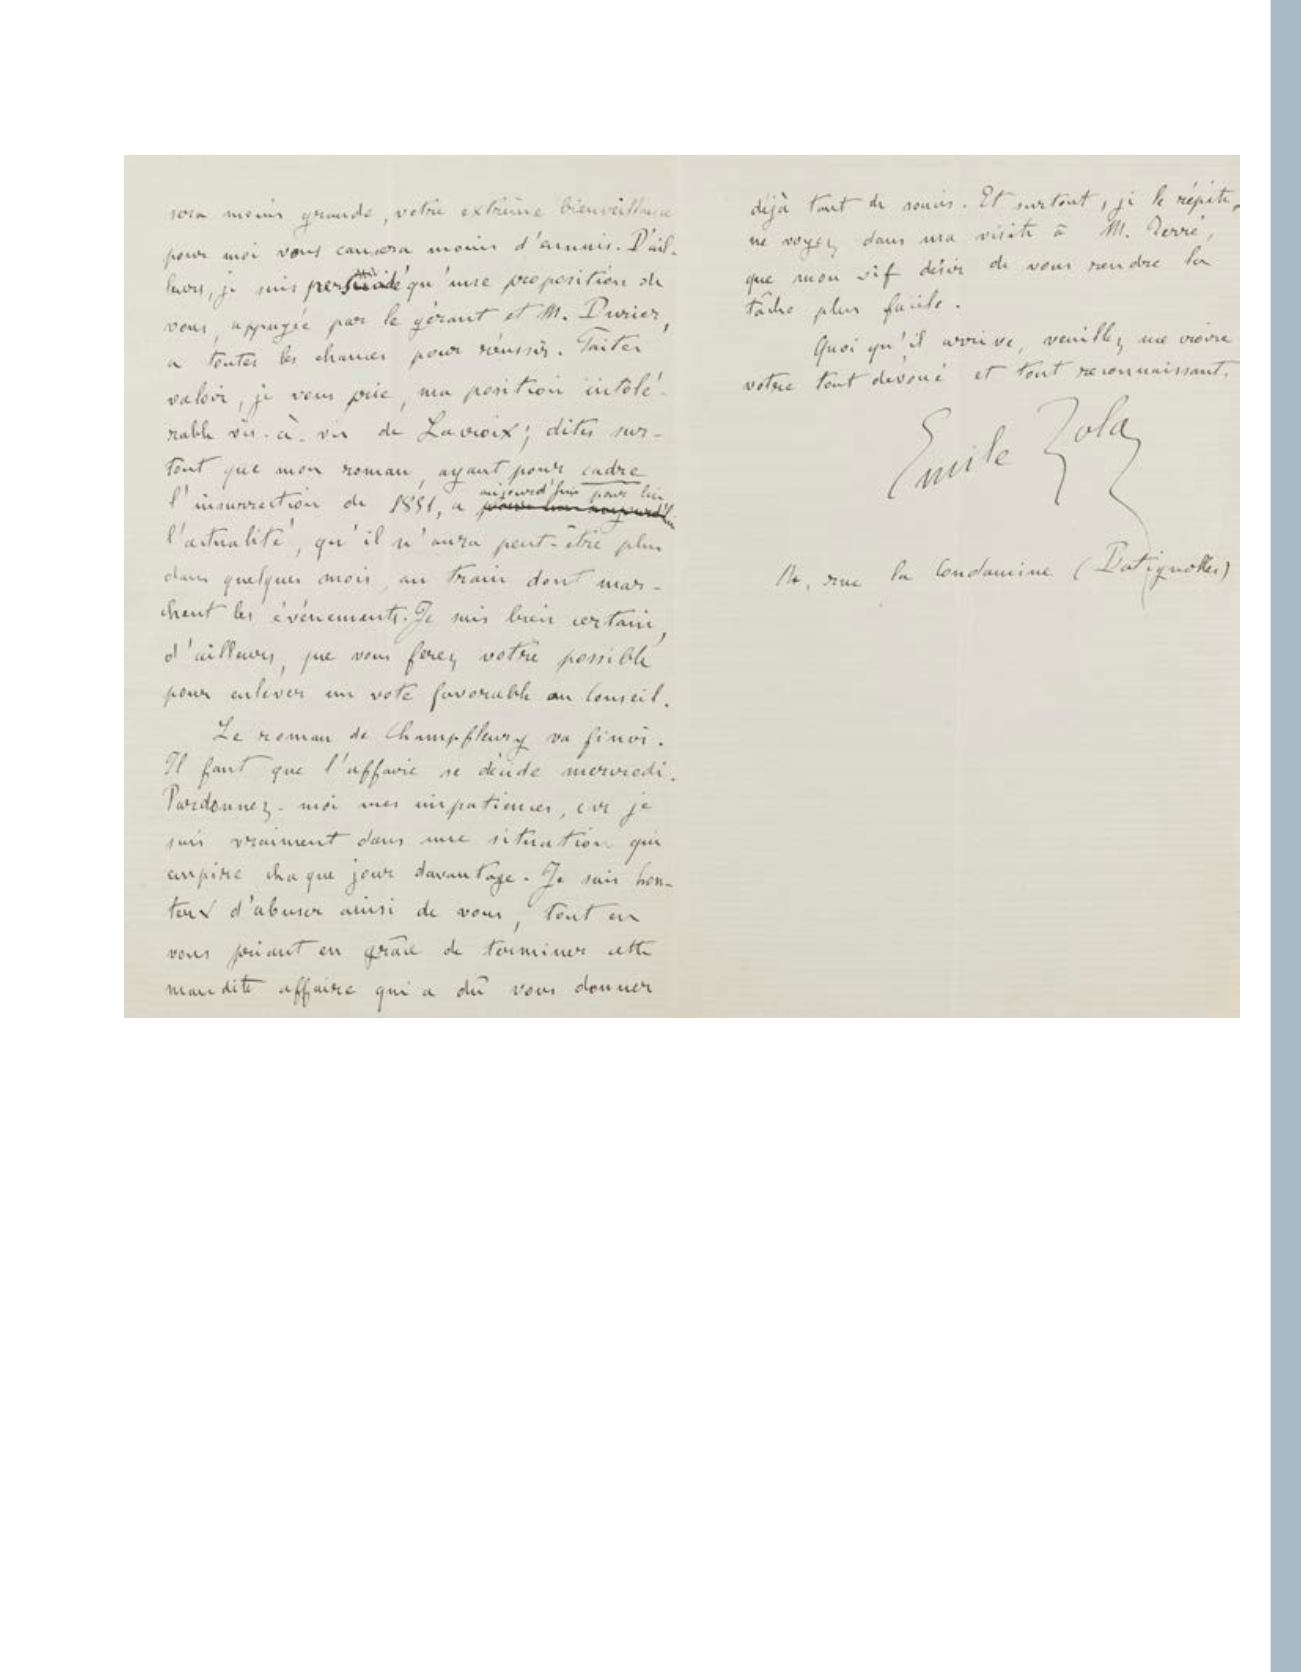 sera moins grande, votre extrême bienveillance
pour moi vous causera moins d'ennuis. D'ail-
leurs, je suis persuadé qu'une proposition de
vous, appuyée par le gérant et M. Durier,
a toutes les chances pour réussir. Faites
valoir, je vous prie, ma position intolé-
rable vis-à-vis de Lacroix; dites sur-
tout que mon roman, ayant pour cadre
l'insurrection de 1851, a aujourd'hui pour lui
l'actualité, qu'il n'aura peut-être plus
dans quelques mois, au train dont mar-
chent les événements. Je suis bien certain,
d'ailleurs, que vous ferez votre possible
pour enlever un vote favorable au Conseil.
Le roman de Champfleury va finir.
Il faut que l'affaire se décide mercredi.
Pardonnez-moi mes impatiences, car je
suis vraiment dans une situation qui
empire chaque jour davantage. Je suis hon-
teux d'abuser ainsi de vous, tout en
vous priant en grâce de terminer cette
maudite affaire qui a dû vous donner
déjà tant de soucis. Et surtout, je le répète,
ne voyez dans ma visite à M.
que mon vif désir de vous rendre la
tâche plus facile.
Quoi qu'il arrive, veuillez me croire
votre tout dévoué et tout reconnaissant.
Emile Zola
14, rue la Condamine (Batignolles)